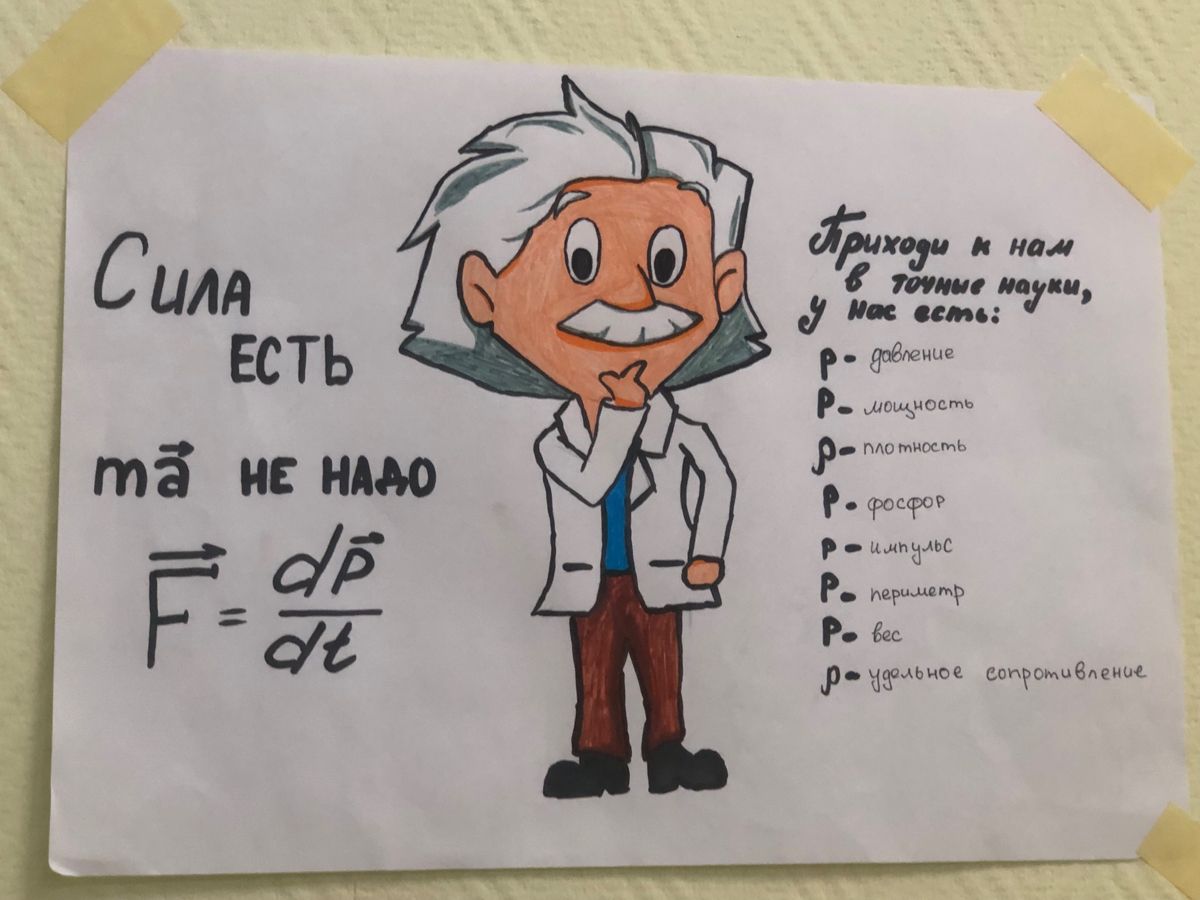 Сила
есть
ma⃗ не надо
F⃗ = dp⃗/dt
Приходи к нам
в точные науки,
у нас есть:
p - давление
P - мощность
ρ - плотность
P - фосфор
p - импульс
P - периметр
P - вес
ρ - удельное сопротивление